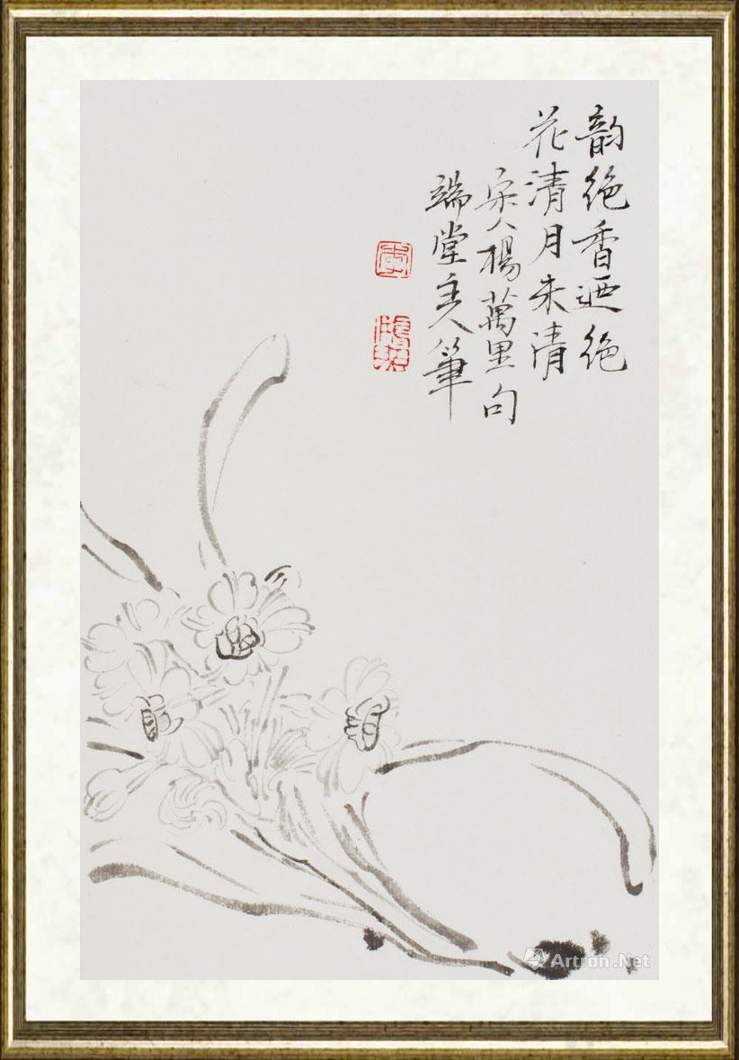 韵绝香迺绝
花清月未清
宋人楊萬里句
端堂主人筆
Artron.Net